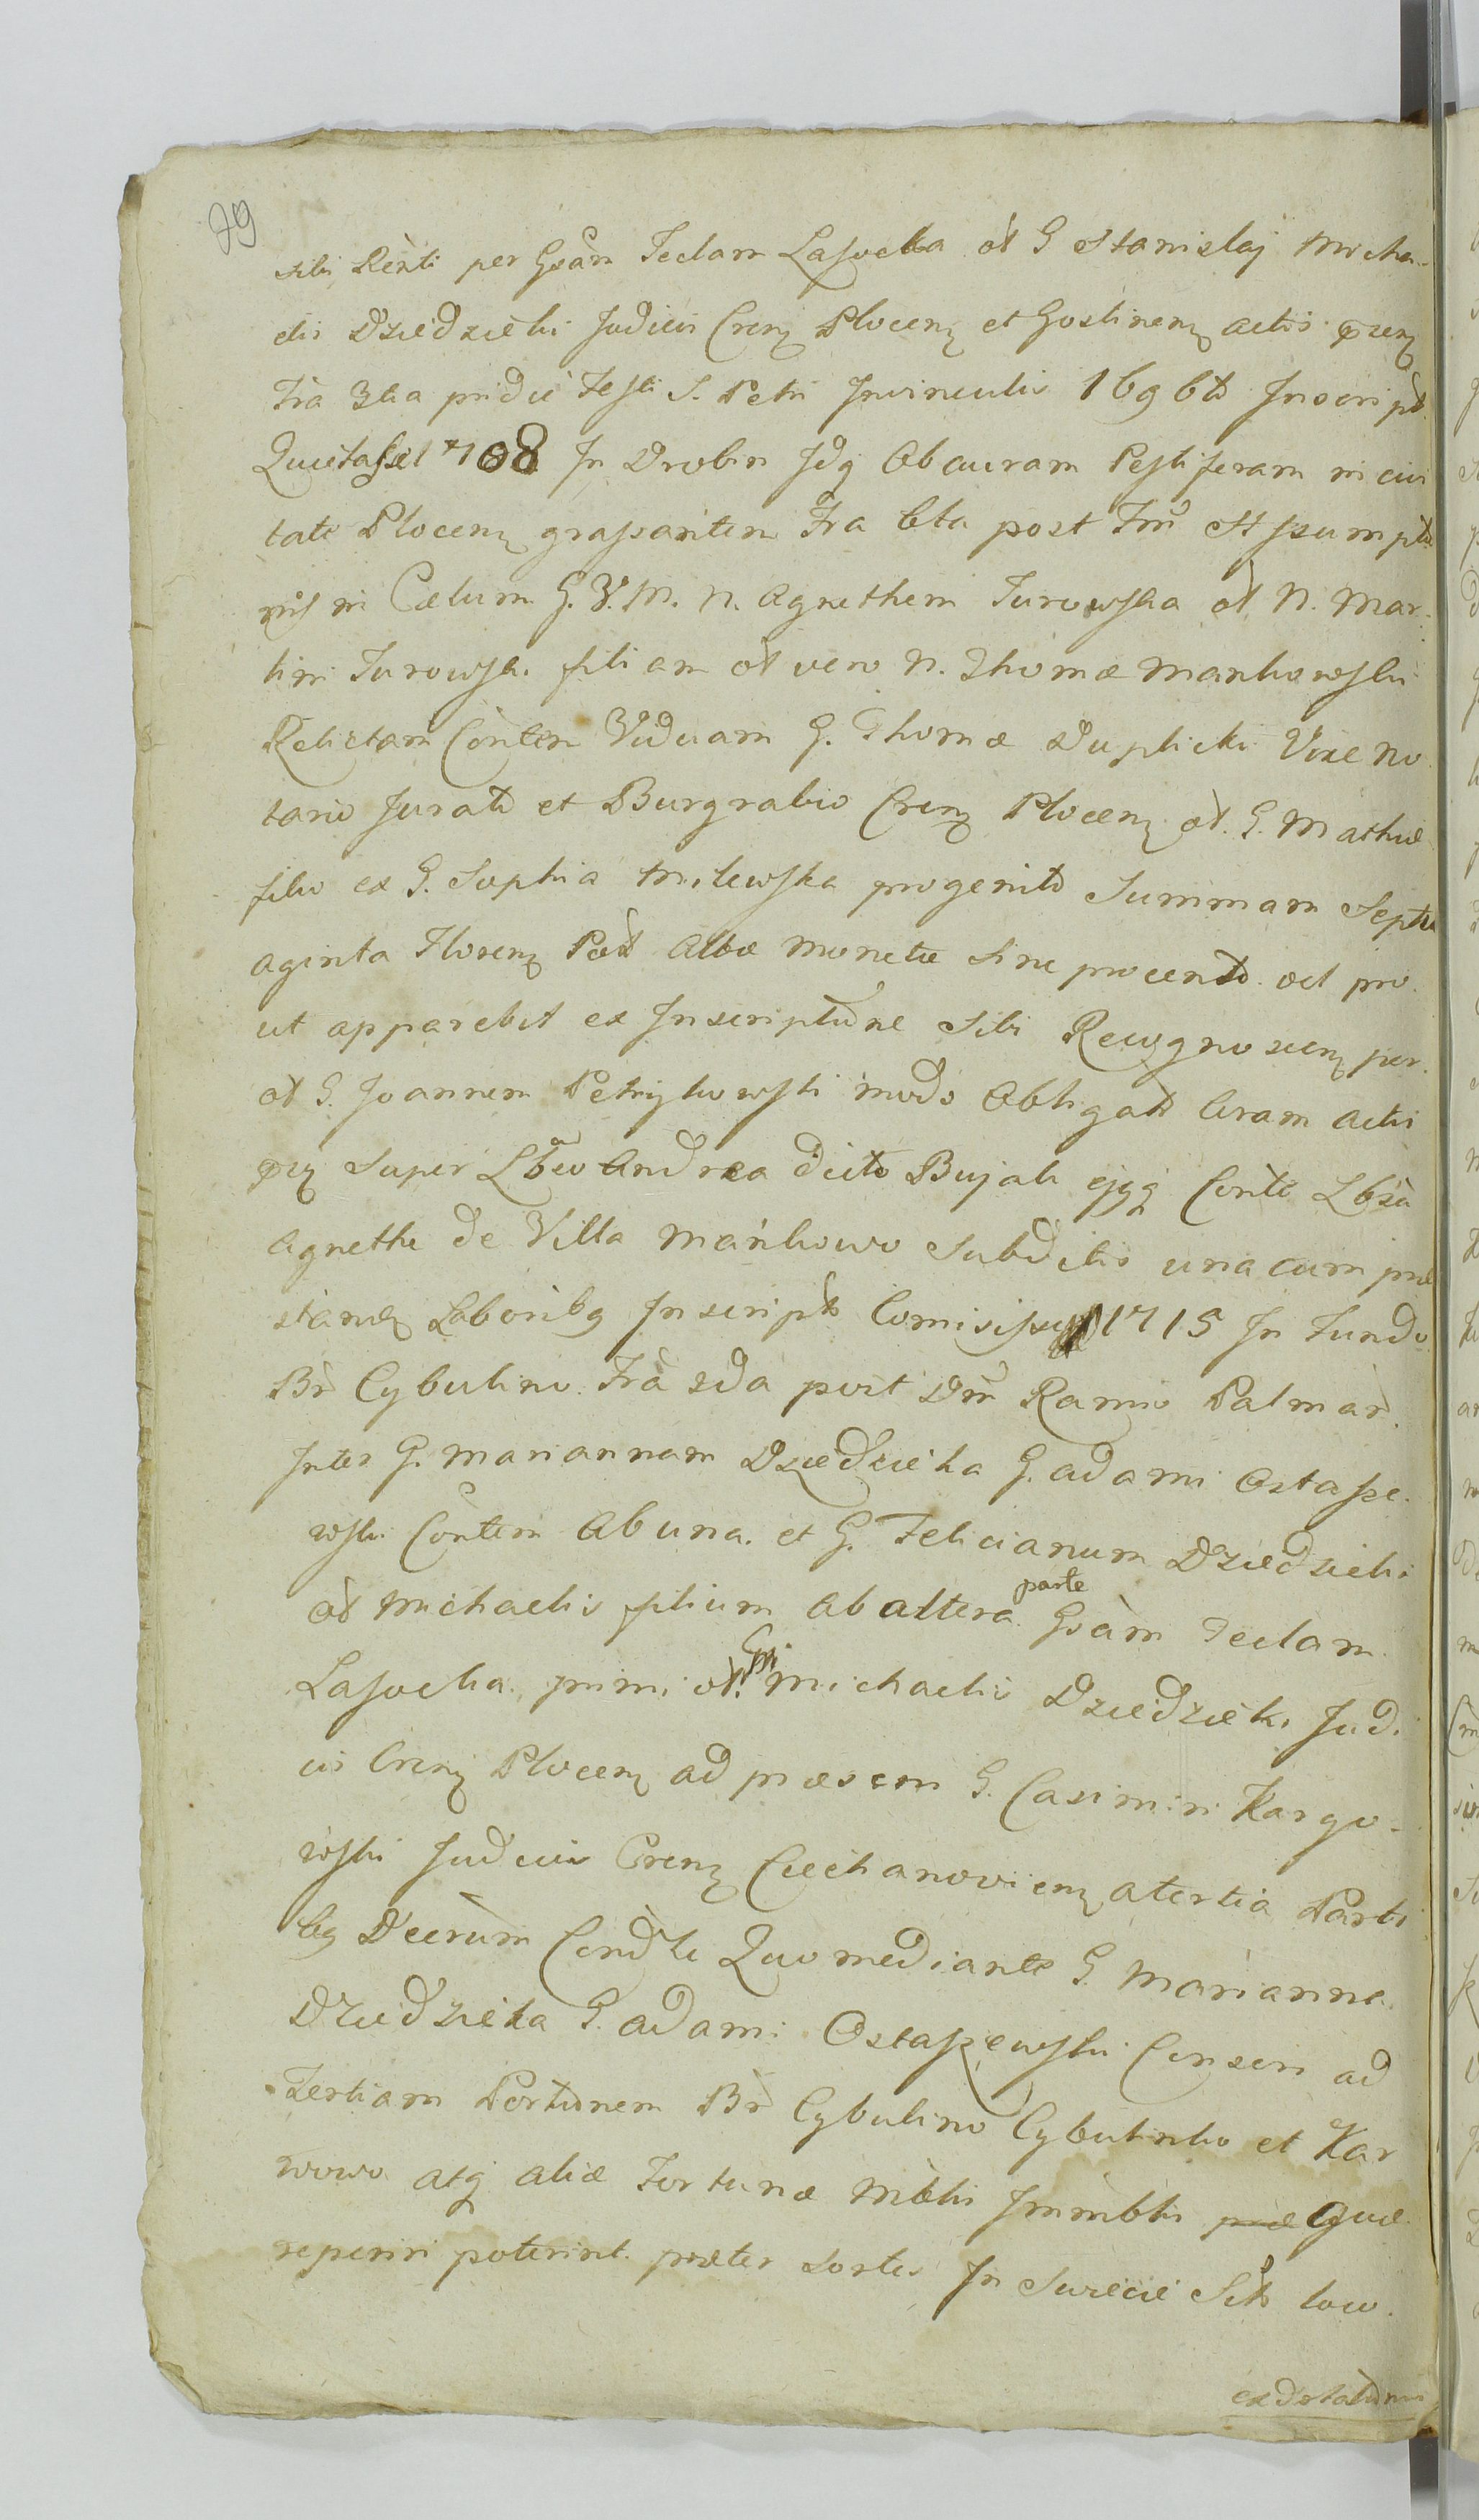 79
sibi Rènti per Gsam Teclam Lasocka ol G Stanislaj Micha-
elis Dziedzicki Judicis Crenz Plocenz et Gostinenz actis przenz
Fra 3tia pridie Festi S. Petri Invinculis 1696to Inscript
Quietasse 1708 In Drobin Idq Ob auram Pestiferam in civi
tate Plocenz grassantem Fra 6ta post Fm Assumptio
nis in Cælum G.V.M. N. Agnethem Turowska ol N. Mar-
tini Turowski filiam ol vero N. Thomæ Mankowski
Relictam Contem Viduam G. Thomæ Duplicki Vice No
tario Jurato et Burgrabio Crenz Plocenz ol. G. Mathiæ
filio ex G. Sophia Milewska progenito Summam Septu
aginta Florenz Pol Albæ Monetæ Sine procento vel pro
ut apparebit ex Inscriptione Sibi Recognoscenz per
ol G. Joannem Petrykowski modo Obligato Coram actis
prz Super Lbëo Andrea dicto Bujak ejqq Conte Lbsa
Agnethe de Villa Mankowo Subditis una cum præ
standz Laboribq Inscript Comisisse 1715 In Fundo
Br Cybulino Fra 2da post Dm Ramis Palmar.
Inter G. Mariannam Dziedzicka G. Adami Ostasze
wski Contem Ab una. et G. Felicianum Dziedzicki
ol Michaelis filium Ab altera parte Gsam Teclam
Lasocka primi ol. Gsi Michaelis Dziedzicki Judi
cis Crenz Plocenz ad præsens G. Casimiri Kargo-
wski Judicis Crenz Ciechanovienz a tertia Parti
bq Decrum Condle Quo mediante G. Marianna
Dziedzicka G. Adami Ostaszewski Consors ad
Tertiam Portionem Br Cybulino Cybulinko et Kar
wowo atq aliæ Fortunæ Mbli Immbli præ quæ
reperiri poterint præter sortes In Swiecie Sito loco
ex dotalitiis